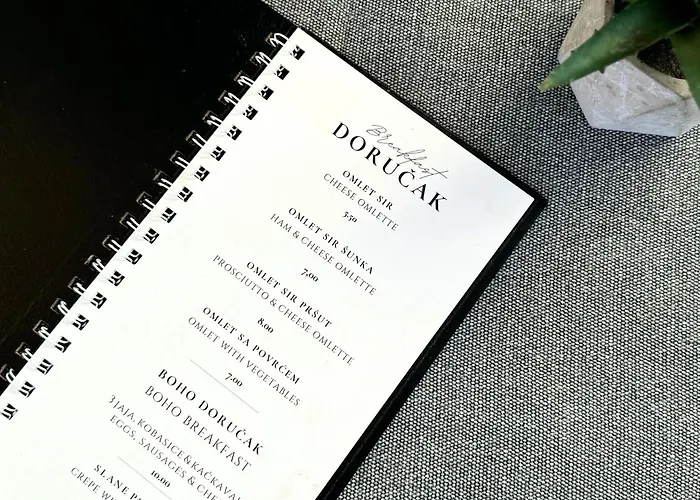 Breakfast
DORUČAK
OMLET SIR
CHEESE OMLETTE
3.50
OMLET SIR ŠUNKA
HAM & CHEESE OMLETTE
7.00
OMLET SIR PRŠUT
PROSCIUTTO & CHEESE OMLETTE
8.00
OMLET SA POVRĆEM
OMLET WITH VEGETABLES
7.00
BOHO DORUČAK
BOHO BREAKFAST
3 JAJA, KOBASICE & KAČKAVAL
EGGS, SAUSAGES & CHE
10.00
SLANE PA
CREPE WI